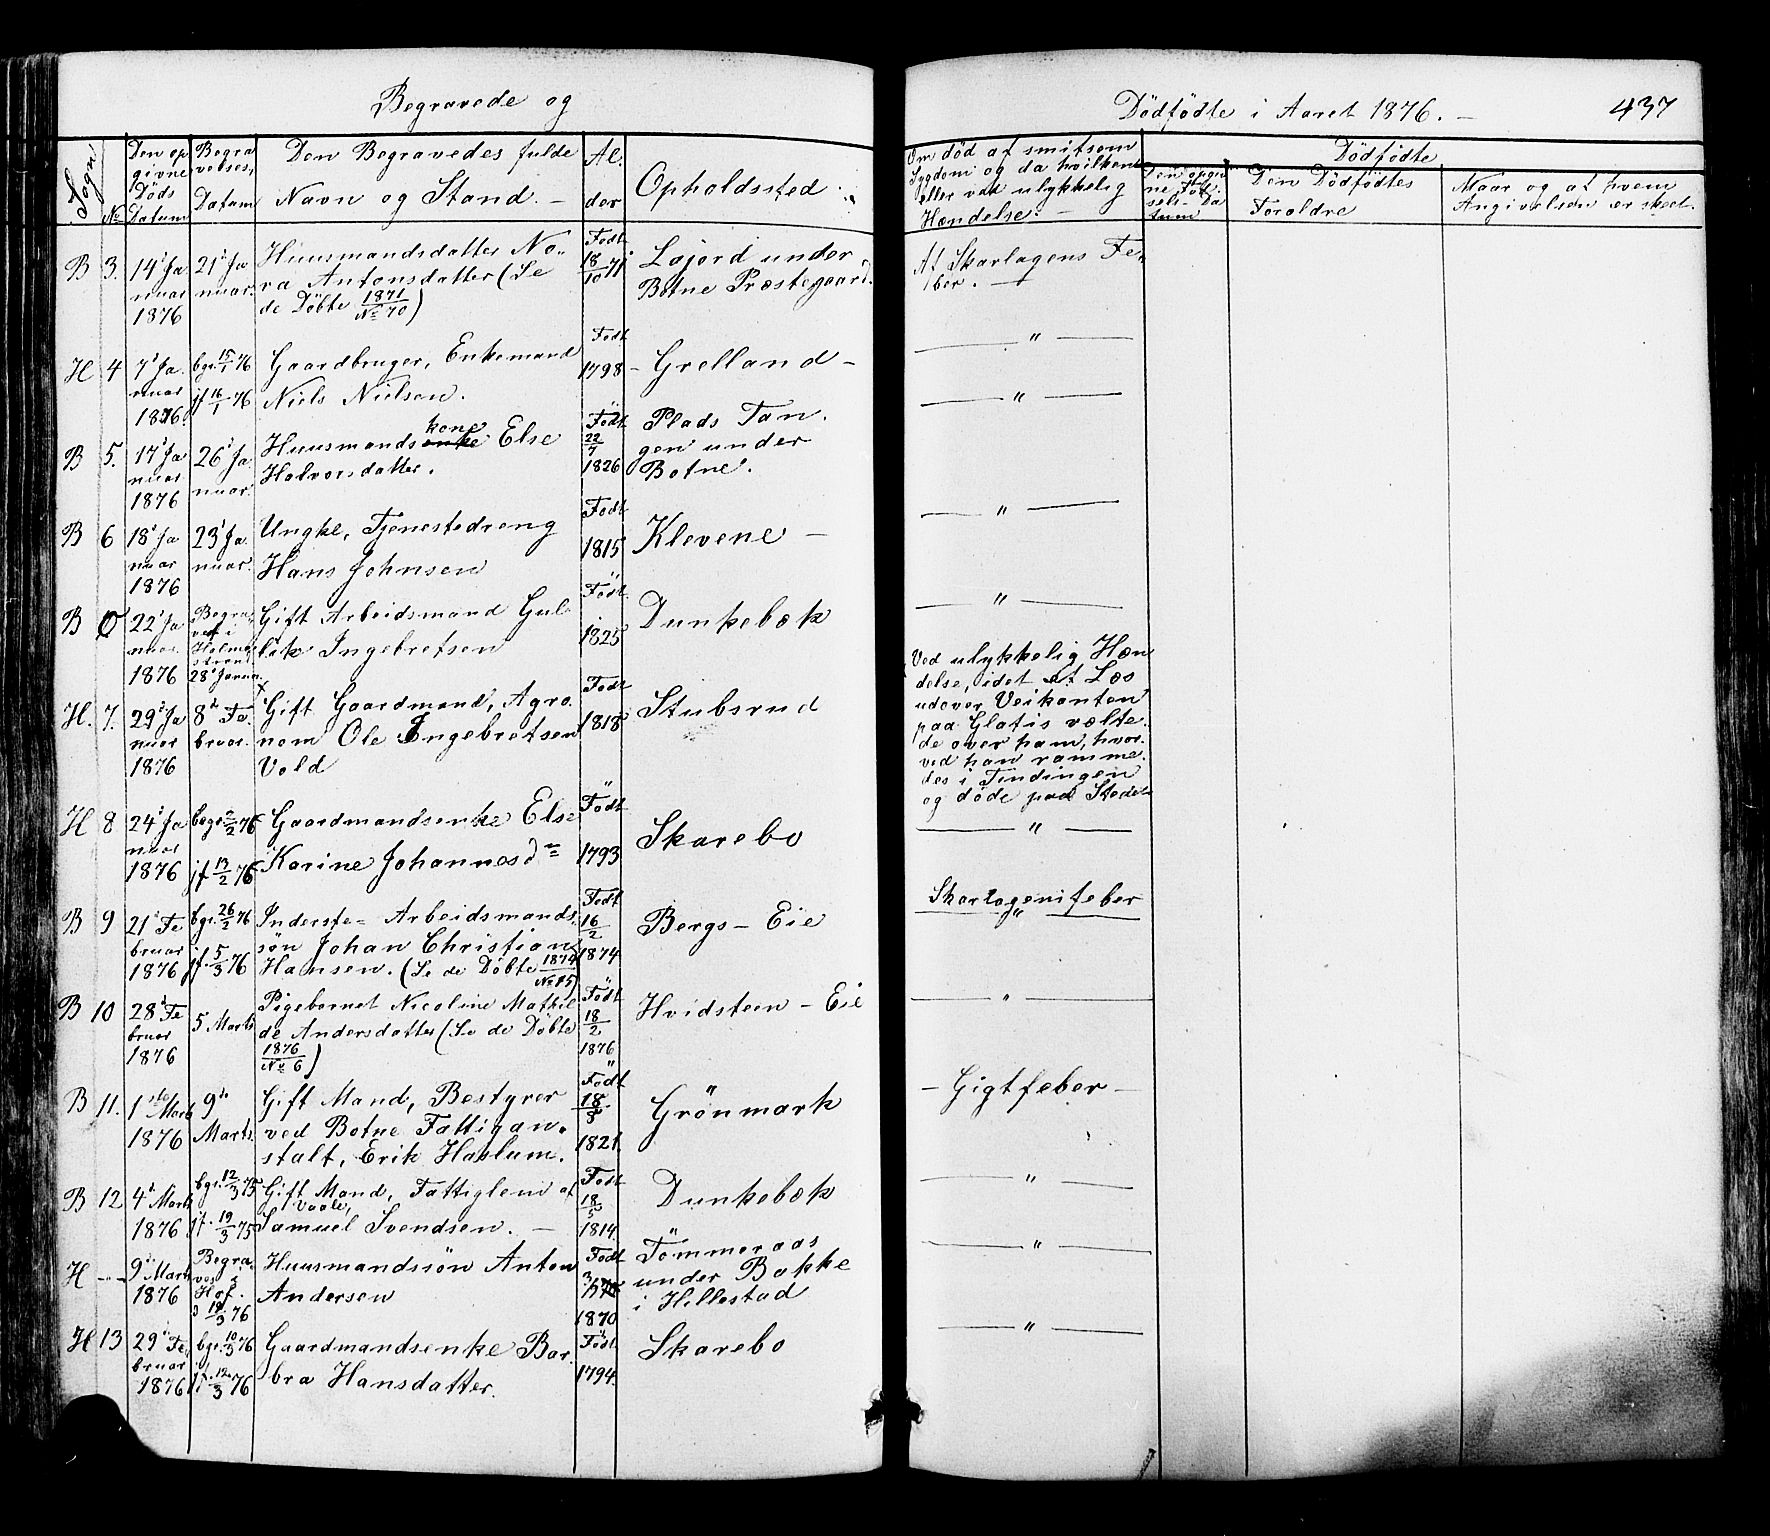 Begravede og
Dödfödte i Aaret 1876. –
437
Sogn
No
Den op
givne
Döds
Datum
Begra
velses,
Datum
Den Begravedes fulde
Navn og Stand. –
Al.
der
Opholdssted.
Om död af smitsom
Sygdom og da hvilken
eller ved ulykkelig
Hændelse. –
Dödfödte
Den opgiv
ne Föd
sels-Da
tum
Den Dödfödtes
Foraldre
Naar og af hvem
Angivelsen er skeet.
B 3. 14d Ja
nuar
1876
21d Ja
nuar.
Huusmandsdatter No
ra Antonsdatter (Se
de Döbte 1871
No 70)
Födt
18
10 71
Løjord under
Botne Præstegaard.
Af Skarlagens Fe
ber. –
H 4 7d Ja
nuar
1876.
bgr. 15/1 76
jf 16/1 76
Gaardbruger, Enkemand
Niels Nielsen.
Födt
1798
– Grelland –
"
B 5. 17d Ja
nuar
1876
26d Ja
nuar.
kone
Huusmandsenke Else
Halvorsdatter.
Födt
22
7
1826
Plads Tan
gen under
Botne.
"
B 6 18d Ja
nuar
1876
23d Ja
nuar.
Ungke, Tjenestedreng
Hans Johnsen
Födt
1815
Klevene –
"
B 0 22d Ja
nuar.
1876
Begra
vet i
Holme
strand
28d Januar
Gift Arbeidsmand Gul
lik Ingebretsen
Födt.
1825
Dunkebæk
"
H. 7. 29d Ja
nuar
1876
8d Fe
bruar.
Gift Gaardmand, Agro
nom Ole Ingebretsen
Vold
Födt
1818
Stubsrud
Ved ulykkelig Hæn
delse, idet et Læs
udover Veikanten
paa Glatis vælte
de over ham, hvor
ved han ramme
des i Tindingen
og döde paa Stedet
H 8 24d Ja
nuar
1876
begr 2/2 76
jf 13/2 76
Gaardmandsenke Else
Karine Johannesd
Födt
1793
Skarebo
"
B 9 21d Fe
bruar
1876
bgr. 26/2 76
jf. 5/3 76
Inderste= Arbeidsmands
sön Johan Christian
Hansen. (Se de Döbte 1874
Födt
16
2
1874
Bergs – Eie
Skarlagensfeber
"
B 10 28d Fe
bruar
1876
5 Marts
Pigebarnet Nicoline Mathil
de Andersdatter (Se de Döbte
1876
No 6)
Födt
18
2
1876
Hvidsteen – Eie
"
B 11. 1ste Marts
1876
9de
Marts.
Gift Mand, Bestyrer
ved Botne Fattigan
stalt, Erik Haslum.
Födt
18
1821.
Grönmark
– Gigtfeber –
B 12 4d Marts
1876
bgr. 12/3 75
jf. 19/3 75
Gift Mand, Fattiglem af
Vaale,
Samuel Svendsen. –
Födt
18
5
1814
Dunkebæk
"
H -"- 9d Marts
1876
Begra
vet i
Hof.
d 19/3 76
Huusmandssön Anton
Andersen
Födt
1870
Tömmeraas
under Bakke
i Hillestad
"
H 13 29d Fe
bruar
1876
bgr. 10/3 76
jf. 12/3 76
Gaardmandsenke Bar
bra Hansdatter.
Födt
1794.
Skarebo
"